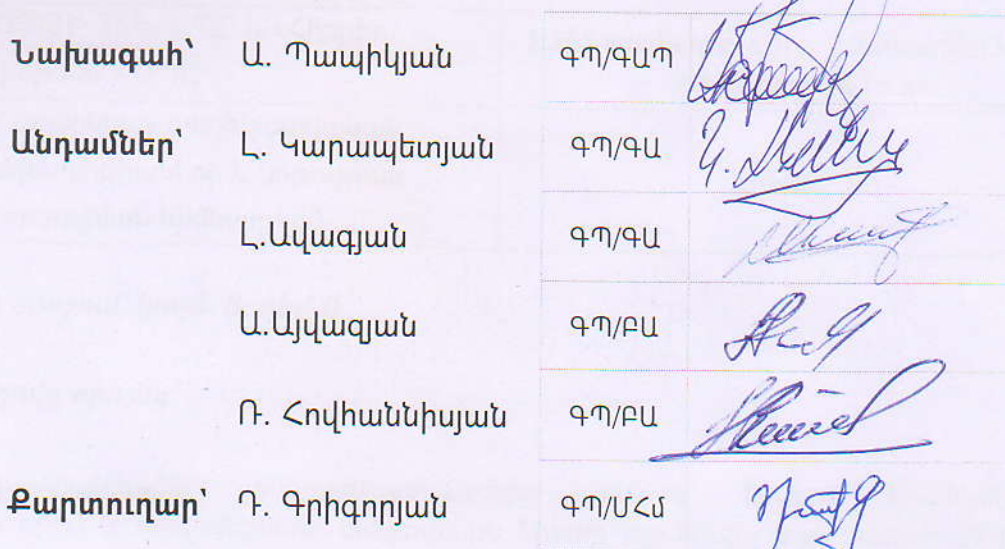 Նախագահ՝ Ա. Պապիկյան ԳՊ/ԳԱՊ
Անդամներ՝ Լ. Կարապետյան ԳՊ/ԳԱ
Լ.Ավագյան ԳՊ/ԳԱ
Ա.Այվազյան ԳՊ/ԲԱ
Ռ. Հովհաննիսյան ԳՊ/ԲԱ
Քարտուղար՝ Դ. Գրիգորյան ԳՊ/ՄՀմ